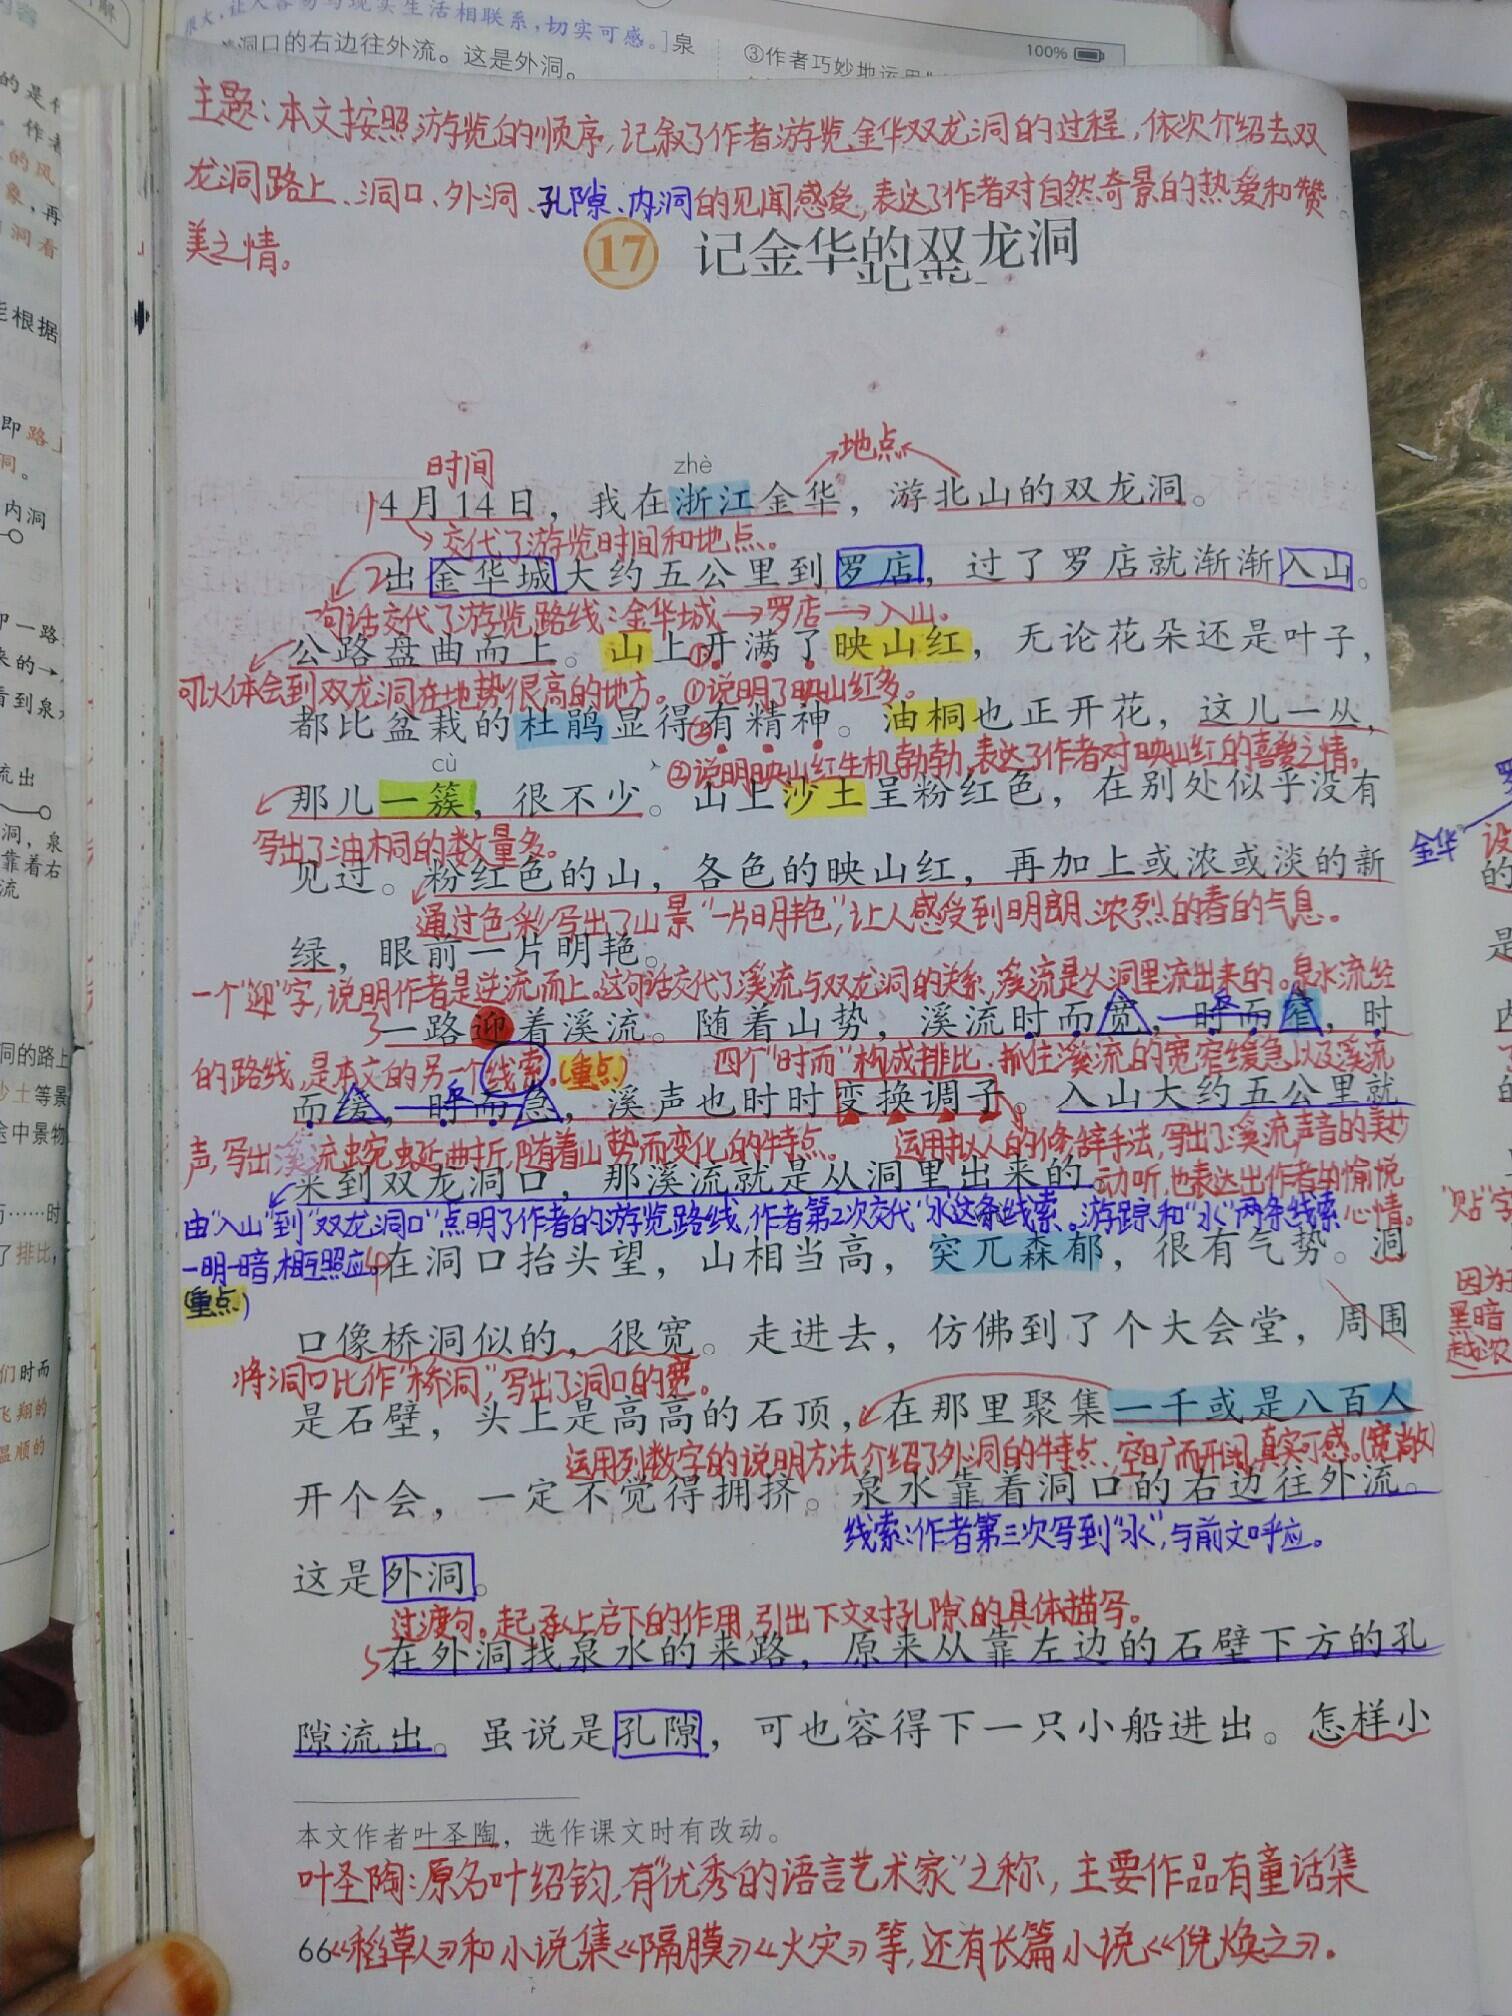 很大，让人容易与现实生活相联系，切实可感。]泉
洞口的右边往外流。这是外洞。
③作者巧妙地运用
100%
主题：本文按照游览的顺序，记叙了作者游览金华双龙洞的过程，依次介绍去双
龙洞路上、洞口、外洞、孔隙、内洞的见闻感受，表达了作者对自然奇景的热爱和赞
美之情。
17 记金华的双龙洞
时间
地点
zhè
1 4月14日，我在浙江金华，游北山的双龙洞。
交代了游览时间和地点。
2 出金华城大约五公里到罗店，过了罗店就渐渐入山。
句话交代了游览路线：金华城→罗店→入山。
公路盘曲而上。山上开满了映山红，无论花朵还是叶子，
可以体会到双龙洞在地势很高的地方。①说明了映山红多。
都比盆栽的杜鹃显得有精神。油桐也正开花，这儿一丛，
②说明映山红生机勃勃，表达了作者对映山红的喜爱之情。
cù
那儿一簇，很不少。山上沙土呈粉红色，在别处似乎没有
写出了油桐的数量多。
见过。粉红色的山，各色的映山红，再加上或浓或淡的新
通过色彩写出了山景“一片明艳”，让人感受到明朗、浓烈的春的气息。
绿，眼前一片明艳。
一个“迎”字，说明作者是逆流而上。这句话交代了溪流与双龙洞的关系，溪流是从洞里流出来的。泉水流经
3 一路迎着溪流。随着山势，溪流时而宽，时而窄，时
的路线，是本文的另一个线索。（重点）
四个“时而”构成排比，抓住溪流的宽窄缓急以及溪流
而缓，时而急，溪声也时时变换调子。入山大约五公里就
声，写出溪流蜿蜒曲折，随着山势而变化的特点。
运用拟人的修辞手法，写出了溪流声音的美妙
来到双龙洞口，那溪流就是从洞里出来的。
动听，也表达出作者的愉悦
由“入山”到“双龙洞口”点明了作者的游览路线，作者第2次交代“水”这条线索。游踪和“水”两条线索
心情。
一明一暗，相互照应。
4 在洞口抬头望，山相当高，突兀森郁，很有气势。洞
（重点）
口像桥洞似的，很宽。走进去，仿佛到了个大会堂，周围
将洞口比作“桥洞”，写出了洞口的宽。
是石壁，头上是高高的石顶，在那里聚集一千或是八百人
运用列数字的说明方法介绍了外洞的特点，空旷而开阔，真实可感。（宽敞）
开个会，一定不觉得拥挤。泉水靠着洞口的右边往外流。
线索：作者第三次写到“水”，与前文呼应。
这是外洞。
过渡句。起承上启下的作用，引出下文对孔隙的具体描写。
5 在外洞找泉水的来路，原来从靠左边的石壁下方的孔
隙流出。虽说是孔隙，可也容得下一只小船进出。怎样小
本文作者叶圣陶，选作课文时有改动。
叶圣陶：原名叶绍钧，有“优秀的语言艺术家”之称，主要作品有童话集
66《稻草人》和小说集《隔膜》《火灾》等，还有长篇小说《倪焕之》。
金华
“贴”字
因为
黑暗
越浓